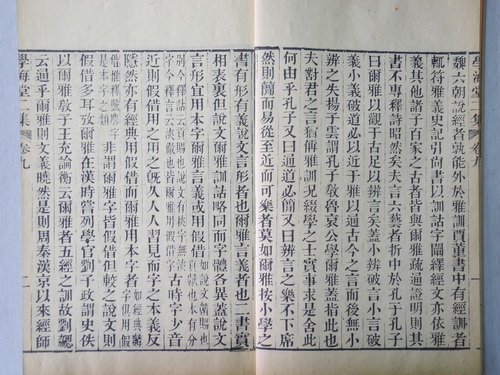 學海堂二集 卷九
魏六朝說經者孰能外於雅訓賈董書中有經訓者
輒符雅義史記引尚書以訓詁字闡繹經文亦依雅
義其他諸子百家之古者皆與爾雅疏通證明則其
書不專釋詩昭然矣夫言六藝者折中於孔子孔子
曰爾雅以觀于古足以辨言矣蓋小辨破言小言破
義小義破道必以近于雅以通古今之言而後無小
辨之失揚子雲謂孔子教魯哀公學爾雅蓋指此也
夫對君之言猶儞雅訓況綴學之士實事求是舍此
何由乎孔子又曰通道必簡又曰辨言之樂不下席
然則簡而易從而可樂者莫如爾雅按小學之
書有形有義說文言形者也爾雅言義者也二書實
相表裏但說文爾雅訓詁略同而體各異蓋說文
言形宜用本字爾雅言義或用假借如說文贛賜也貢獻也本有分
別今釋詁云貢賜也皆爾雅用假借古時字少音
近則假借用之用之既久人人習見而字之本義反
隱然亦有經典用假借而爾雅用本字者如經典麟字俱用假
借惟釋獸字是本字之類非謂爾雅字皆假借但較之說文則
假借多耳攷爾雅在漢時嘗列學官劉子政謂史佚
以爾雅教子王充論衡云爾雅者五經之訓故劉勰
云通乎爾雅則文義曉然是則周秦漢京以來經師
學海堂二集 卷九 二